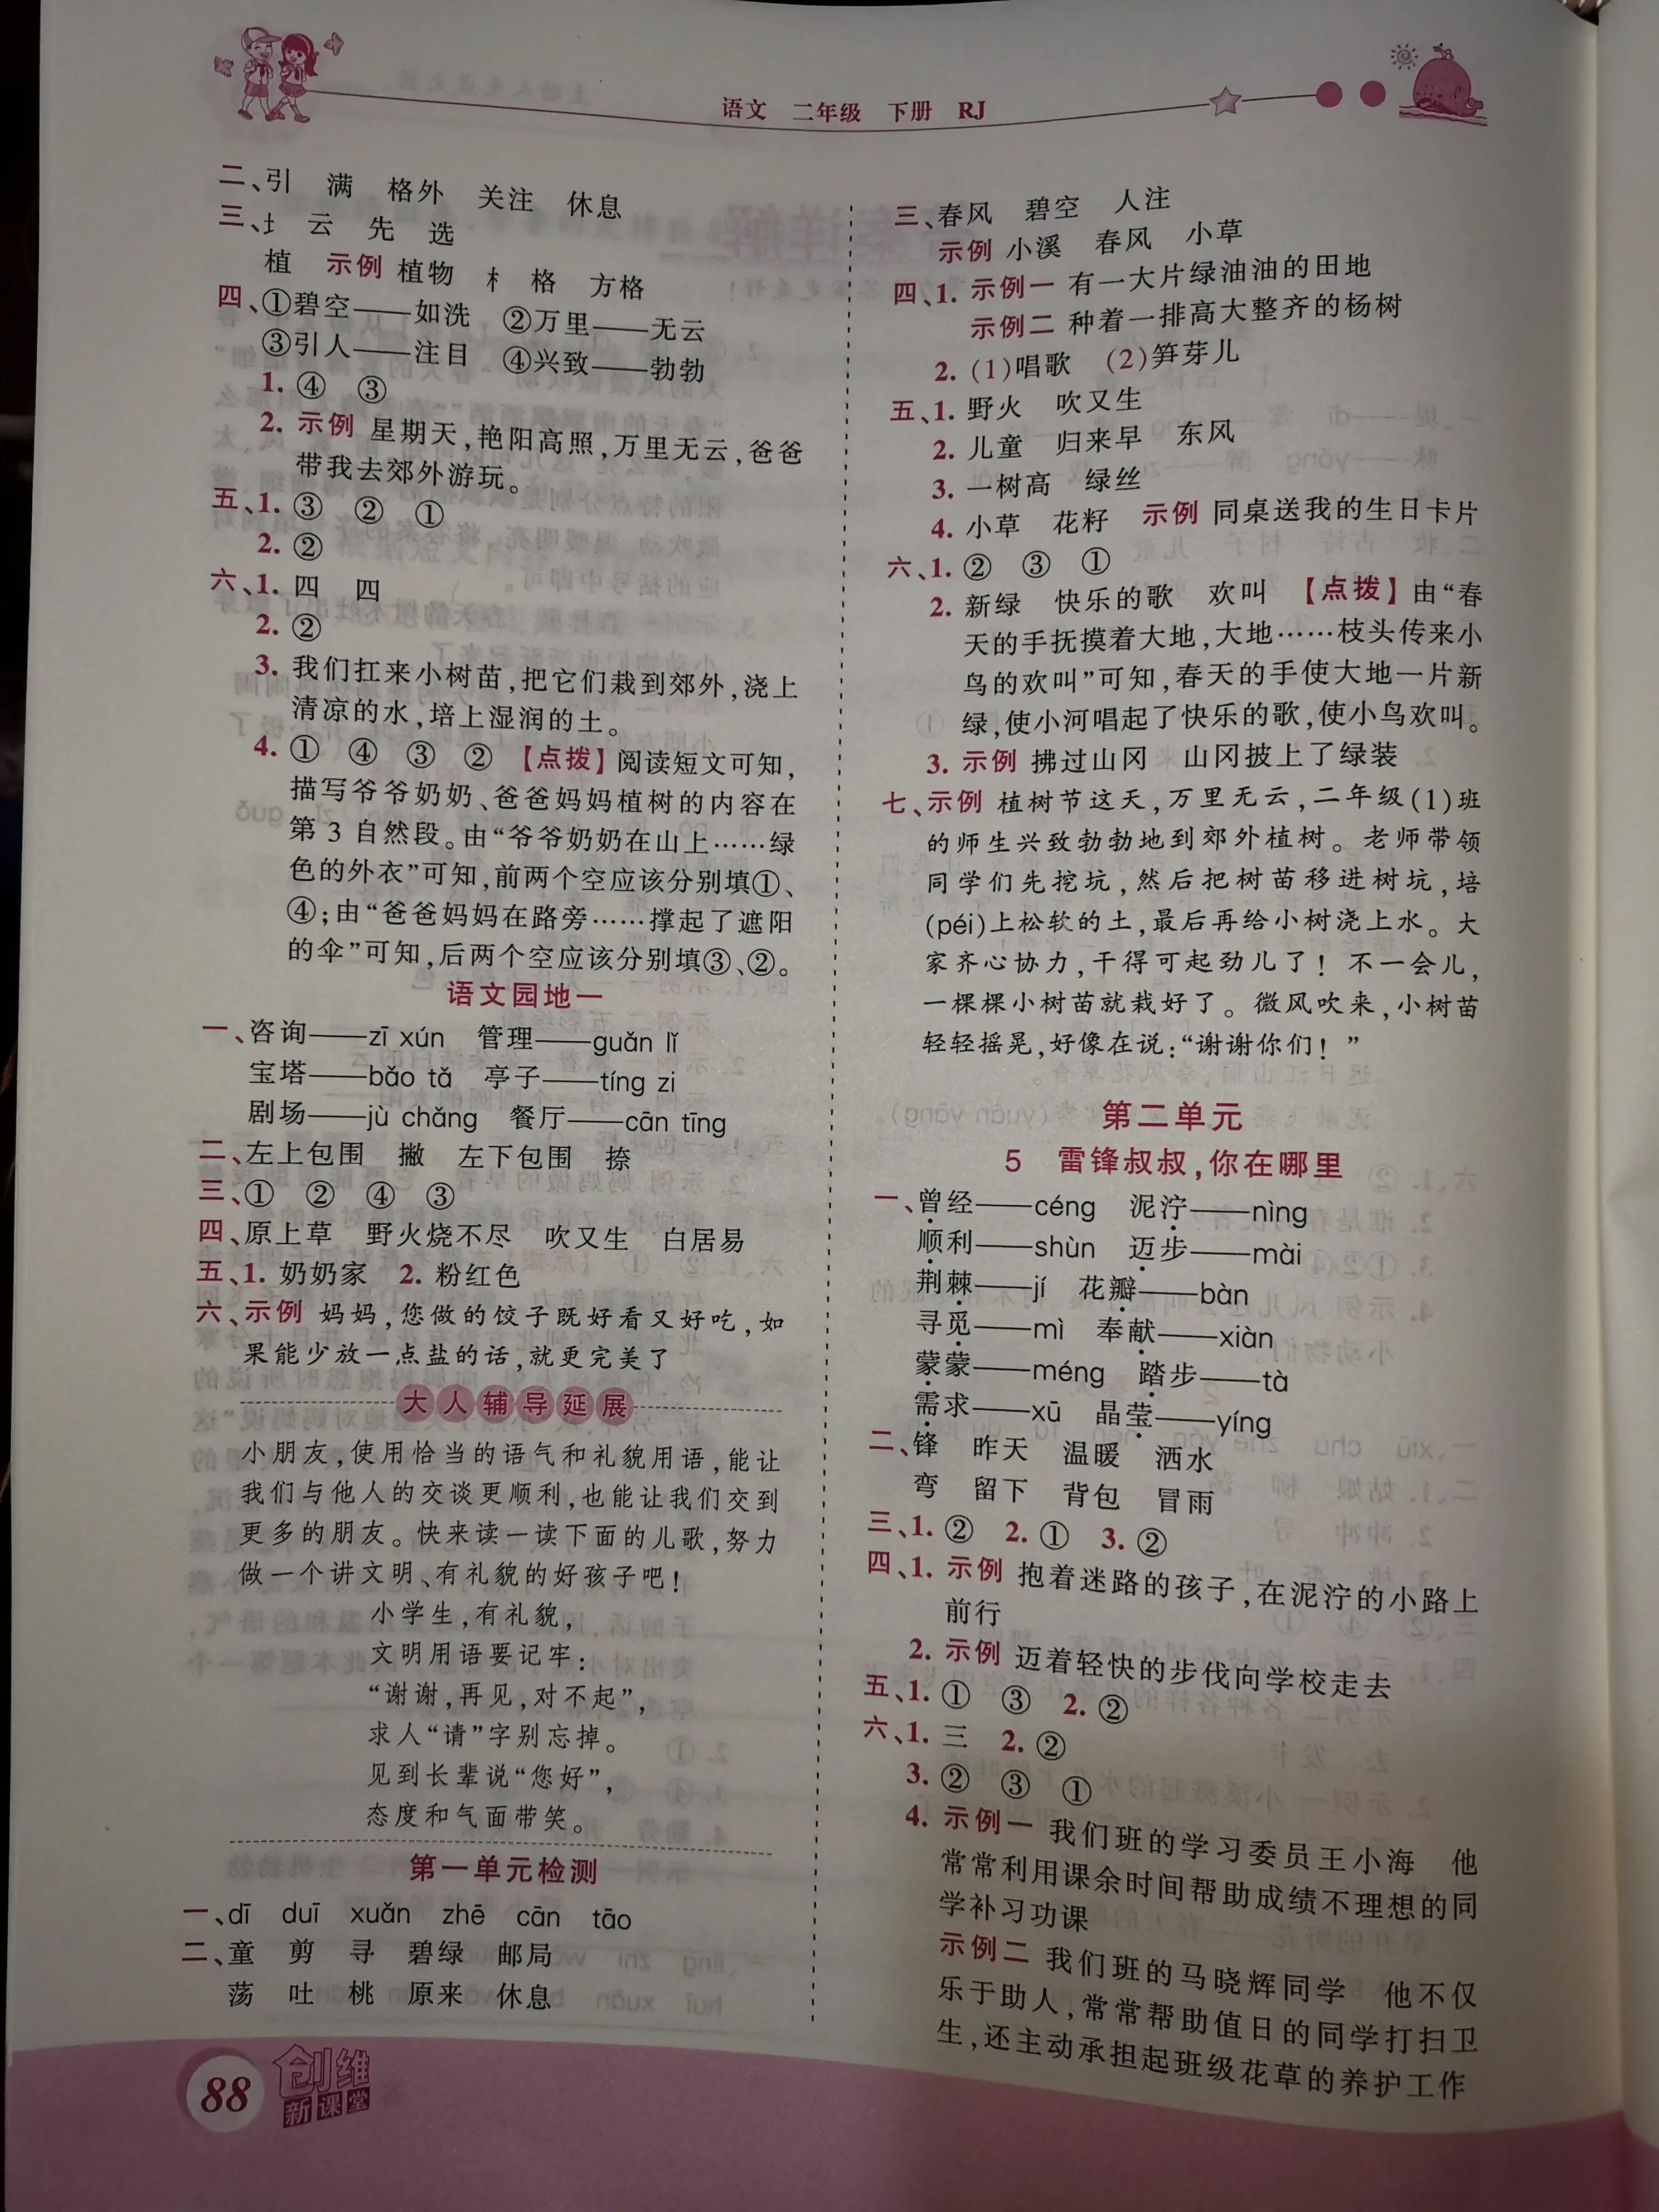 语文 二年级 下册 RJ
二、引 满 格外 关注 休息
三、扌 云 先 选
植 示例 植物 木 格 方格
四、①碧空——如洗 ②万里——无云
③引人——注目 ④兴致——勃勃
1. ④ ③
2. 示例 星期天,艳阳高照,万里无云,爸爸
带我去郊外游玩。
五、1. ③ ② ①
2. ②
六、1. 四 四
2. ②
3. 我们扛来小树苗,把它们栽到郊外,浇上
清凉的水,培上湿润的土。
4. ① ④ ③ ② 【点拨】阅读短文可知,
描写爷爷奶奶、爸爸妈妈植树的内容在
第 3 自然段。由“爷爷奶奶在山上……绿
色的外衣”可知,前两个空应该分别填①、
④;由“爸爸妈妈在路旁……撑起了遮阳
的伞”可知,后两个空应该分别填③、②。
语文园地一
一、咨询——zī xún 管理——guǎn lǐ
宝塔——bǎo tǎ 亭子——tíng zi
剧场——jù chǎng 餐厅——cān tīng
二、左上包围 撇 左下包围 捺
三、① ② ④ ③
四、原上草 野火烧不尽 吹又生 白居易
五、1. 奶奶家 2. 粉红色
六、示例 妈妈,您做的饺子既好看又好吃,如
果能少放一点盐的话,就更完美了
大人辅导延展
小朋友,使用恰当的语气和礼貌用语,能让
我们与他人的交谈更顺利,也能让我们交到
更多的朋友。快来读一读下面的儿歌,努力
做一个讲文明、有礼貌的好孩子吧!
小学生,有礼貌,
文明用语要记牢:
“谢谢,再见,对不起”,
求人“请”字别忘掉。
见到长辈说“您好”,
态度和气面带笑。
第一单元检测
一、dī duī xuǎn zhē cān tāo
二、童 剪 寻 碧绿 邮局
荡 吐 桃 原来 休息
88
创维
新课堂
三、春风 碧空 人注
示例 小溪 春风 小草
四、1. 示例一 有一大片绿油油的田地
示例二 种着一排高大整齐的杨树
2. (1)唱歌 (2)笋芽儿
五、1. 野火 吹又生
2. 儿童 归来早 东风
3. 一树高 绿丝
4. 小草 花籽 示例 同桌送我的生日卡片
六、1. ② ③ ①
2. 新绿 快乐的歌 欢叫 【点拨】由“春
天的手抚摸着大地,大地……枝头传来小
鸟的欢叫”可知,春天的手使大地一片新
绿,使小河唱起了快乐的歌,使小鸟欢叫。
3. 示例 拂过山冈 山冈披上了绿装
七、示例 植树节这天,万里无云,二年级(1)班
的师生兴致勃勃地到郊外植树。老师带领
同学们先挖坑,然后把树苗移进树坑,培
(péi)上松软的土,最后再给小树浇上水。大
家齐心协力,干得可起劲儿了!不一会儿,
一棵棵小树苗就栽好了。微风吹来,小树苗
轻轻摇晃,好像在说:“谢谢你们!”
第二单元
5 雷锋叔叔,你在哪里
一、曾经——céng 泥泞——nìng
顺利——shùn 迈步——mài
荆棘——jí 花瓣——bàn
寻觅——mì 奉献——xiàn
蒙蒙——méng 踏步——tà
需求——xū 晶莹——yíng
二、锋 昨天 温暖 洒水
弯 留下 背包 冒雨
三、1. ② 2. ① 3. ②
四、1. 示例 抱着迷路的孩子,在泥泞的小路上
前行
2. 示例 迈着轻快的步伐向学校走去
五、1. ① ③ 2. ②
六、1. 三 2. ②
3. ② ③ ①
4. 示例一 我们班的学习委员王小海 他
常常利用课余时间帮助成绩不理想的同
学补习功课
示例二 我们班的马晓辉同学 他不仅
乐于助人,常常帮助值日的同学打扫卫
生,还主动承担起班级花草的养护工作